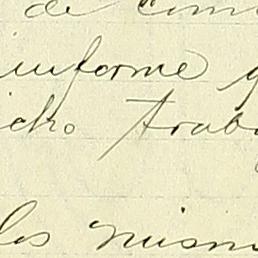 de com
informe q
icho Traba
los mism